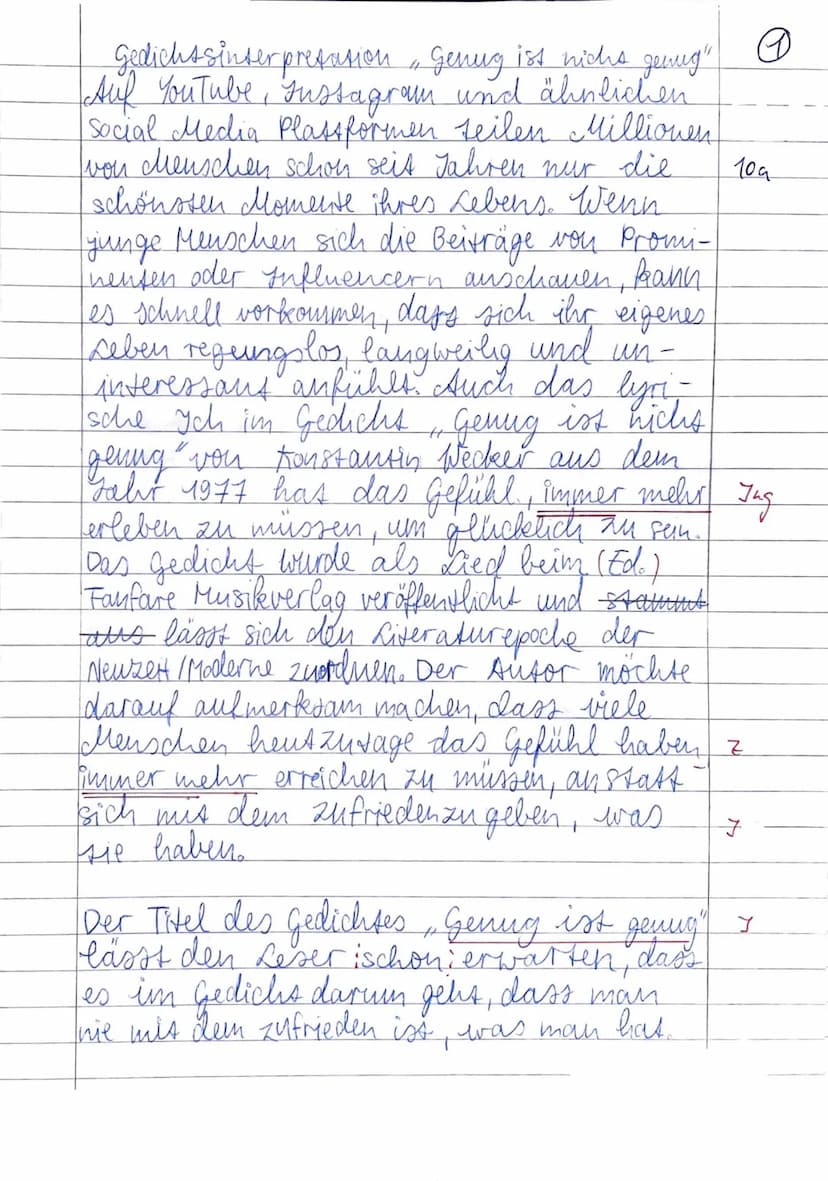 Gedichtsinterpretation „Genug ist nicht genug"
①
Auf YouTube, Instagram und ähnlichen
Social Media Plattformen teilen Millionen
von Menschen schon seit Jahren nur die
10a
schönsten Momente ihres Lebens. Wenn
junge Menschen sich die Beiträge von Promi-
nenten oder Influencern anschauen, kann
es schnell vorkommen, dass sich ihr eigenes
Leben regungslos, langweilig und un-
interessant anfühlt. Auch das lyri-
sche Ich im Gedicht „Genug ist nicht
genug" von Konstantin Wecker aus dem
Jahr 1977 hat das Gefühl, immer mehr
erleben zu müssen, um glücklich zu sein.
Das Gedicht wurde als Lied beim (Ed.)
Fanfare Musikverlag veröffentlicht und stammt
aus lässt sich den Literaturepoche der
Neuzeit/Moderne zuordnen. Der Autor möchte
darauf aufmerksam machen, dass viele
Menschen heutzutage das Gefühl haben
Z
immer mehr erreichen zu müssen, anstatt
sich mit dem zufriedenzugeben, was
I
sie haben.
Der Titel des Gedichtes „Genug ist genug"
I
lässt den Leser schon erwarten, dass
es im Gedicht darum geht, dass man
nie mit dem zufrieden ist, was man hat.